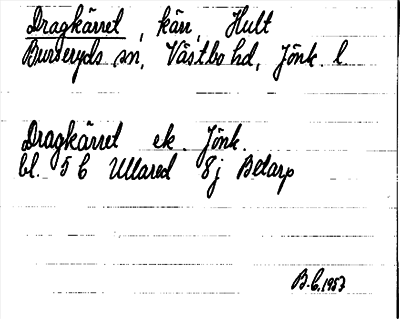 Dragkärret, kärr, Hult
Burseryds sn, Västbo hd, Jönk. l
Dragkärret ek. Jönk.
bl. 5 C Ullared 8j Betarp
B.C. 1953